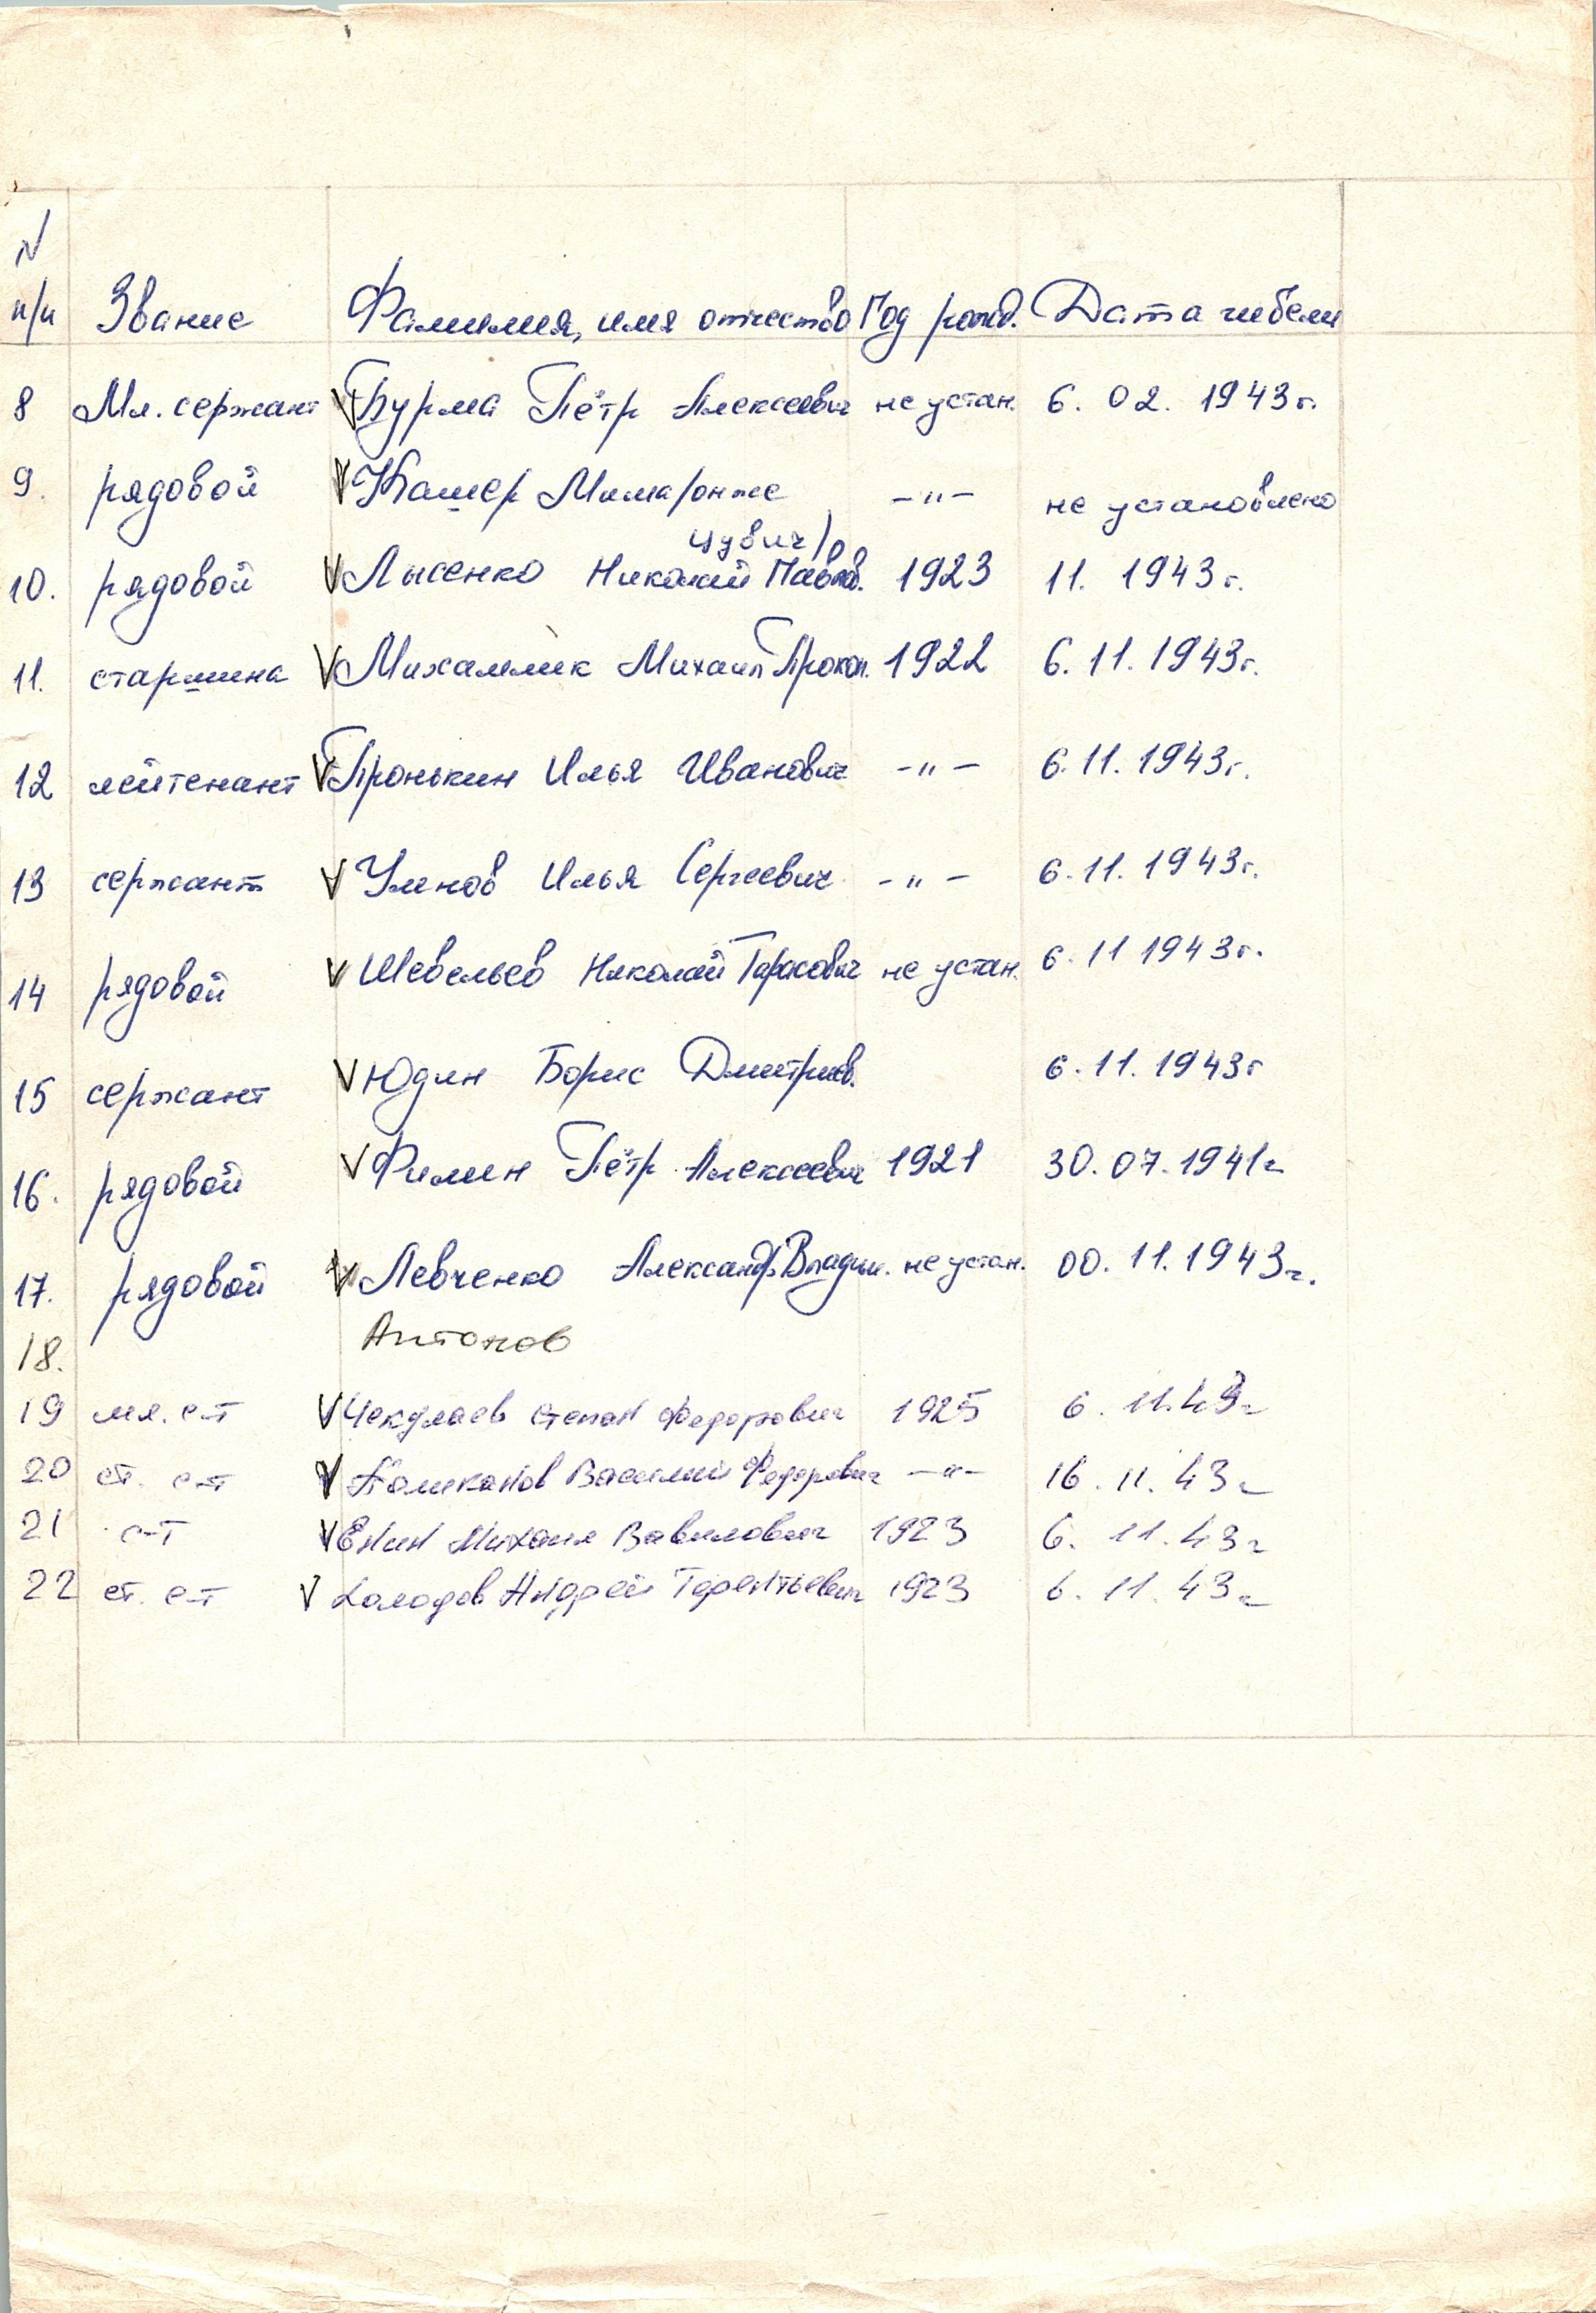 N
п/п Звание Фамилия, имя отчество Год рожд. Дата гибели
8 Мл. сержант V Бурма Пётр Алексеевич не устан. 6. 02. 1943 г.
9. рядовой V Кашер Мима/онже - " - не установлено
цувич/
10. рядовой V Лысенко Николай Павлов. 1923 11. 1943 г.
11. старшина V Михайлик Михаил Прокоп. 1922 6. 11. 1943 г.
12 лейтенант V Пронькин Илья Иванович - " - 6. 11. 1943 г.
13 сержант V Умнов Илья Сергеевич - " - 6. 11. 1943 г.
14 рядовой V Шевельев Николай Тарасович не устан. 6. 11 1943 г.
15 сержант V Юдин Борис Дмитриев. 6. 11. 1943 г
16. рядовой V Филин Пётр Алексеевич 1921 30. 07. 1941 г
17. рядовой V Левченко Александр Владим. не устан. 00. 11. 1943 г.
18. Антонов
19 мл. с-т V Чекулаев Степан Федорович 1925 6. 11. 43 г
20 ст. с-т V Василий Федорович - " - 16. 11. 43 г
21 с-т V Енин Михаил Вавилович 1923 6. 11. 43 г
22 ст. с-т V Холодов Андрей Терентьевич 1923 6. 11. 43 г